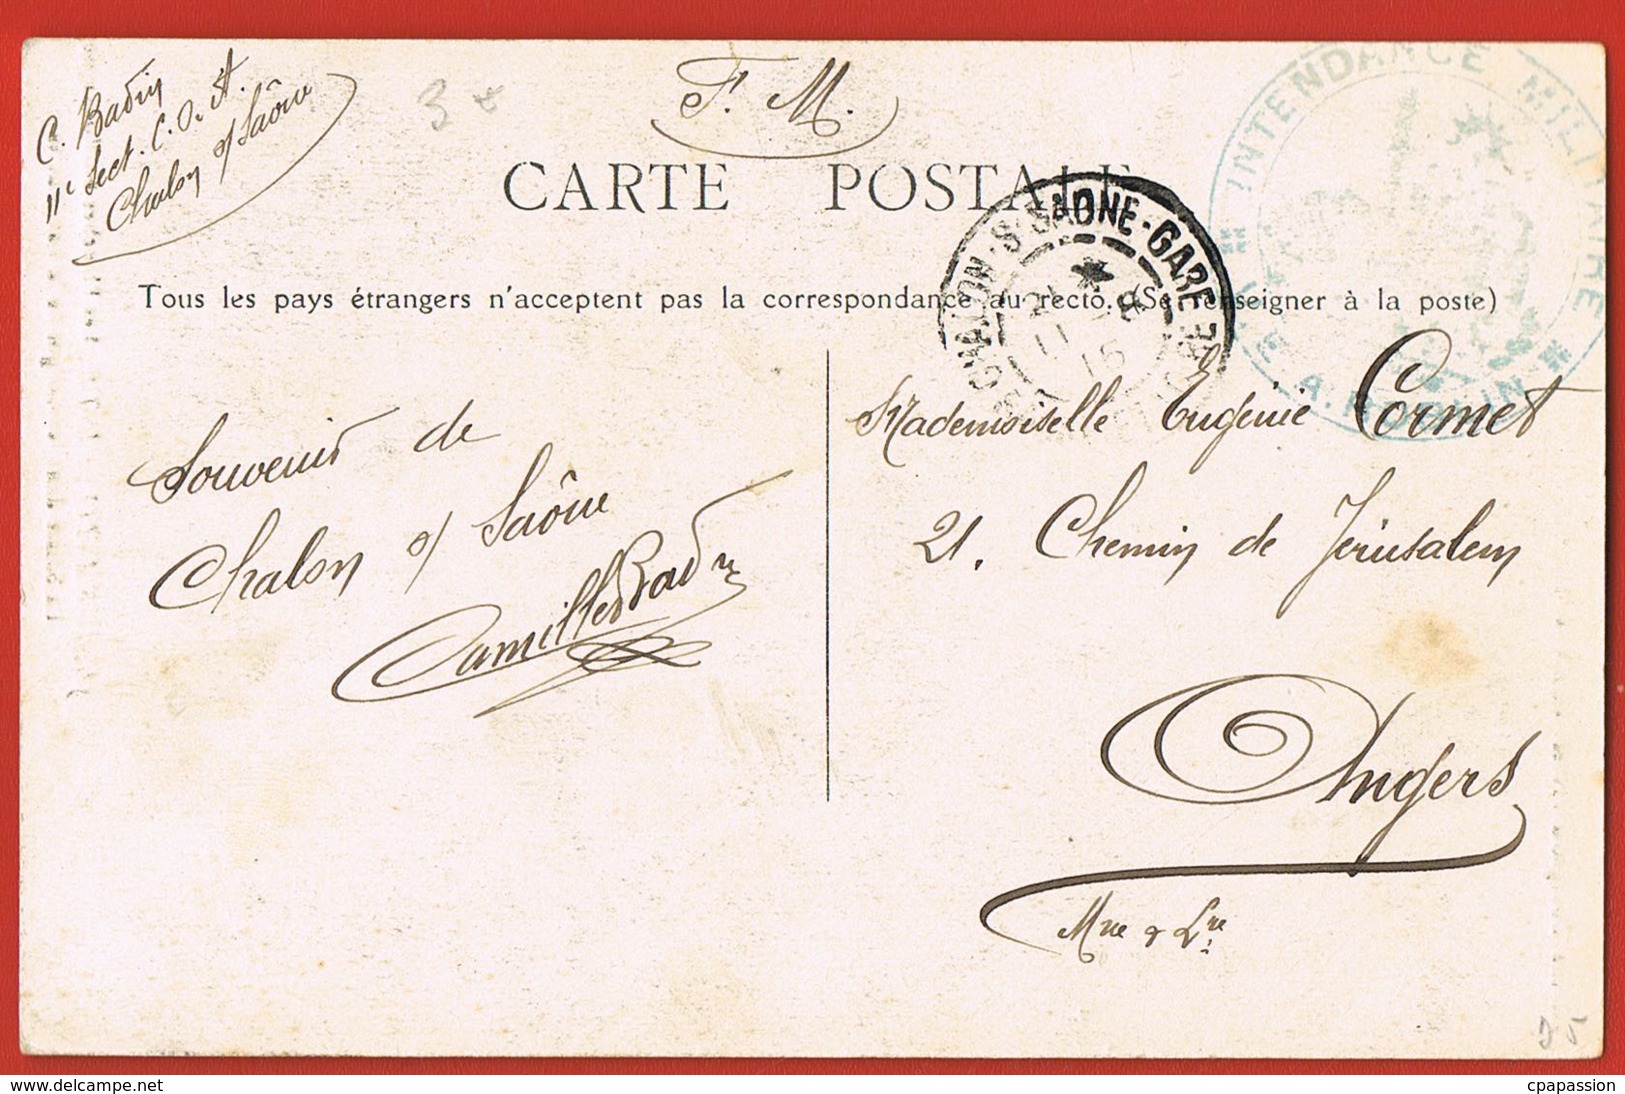 C. Badin
11e Sect. C. O. A.
Chalon s/ Saône
3
F. M.
CARTE POSTALE
INTENDANCE MILITAIRE
CHALON-S-SAONE-GARE
11
15
Tous les pays étrangers n'acceptent pas la correspondance au recto. (Se renseigner à la poste)
Souvenir de
Chalon s/ Saône
Camille Badin
Mademoiselle Eugénie Cormet
21. Chemin de Jérusalem
Angers
Mne & Lre
delcampe.net
cpapassion